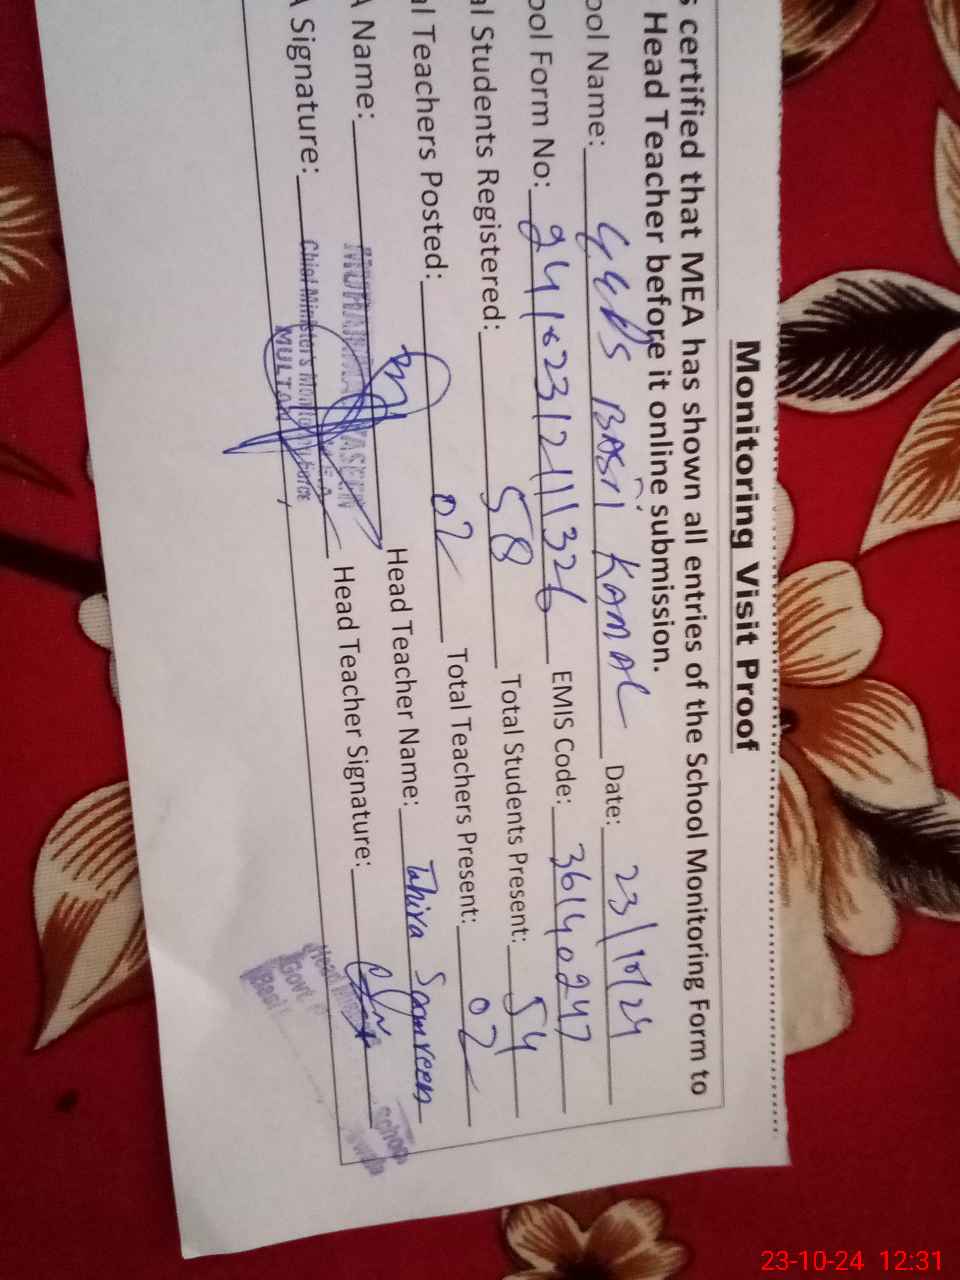 Monitoring Visit Proof
s certified that MEA has shown all entries of the School Monitoring Form to
Head Teacher before it online submission.
ool Name: GGPS BASTI KAMAL Date: 23/10/24
ool Form No: 24102312111326 EMIS Code: 36140247
al Students Registered: 58 Total Students Present: 54
al Teachers Posted: 02 Total Teachers Present: 02
A Name: Head Teacher Name: Tahira Samreen
A Signature: Head Teacher Signature:
Chief Minister's Monitoring Force
MULTAN
Govt.
Basti
School
23-10-24 12:31